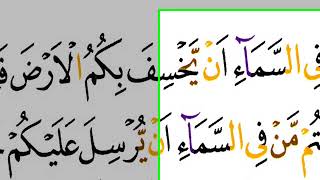 فِى السَّمَآءِ اَنْ يَّخْسِفَ بِكُمُ الْاَرْضَ
تُمْ مَّنْ فِى السَّمَآءِ اَنْ يُّرْسِلَ عَلَيْكُمْ